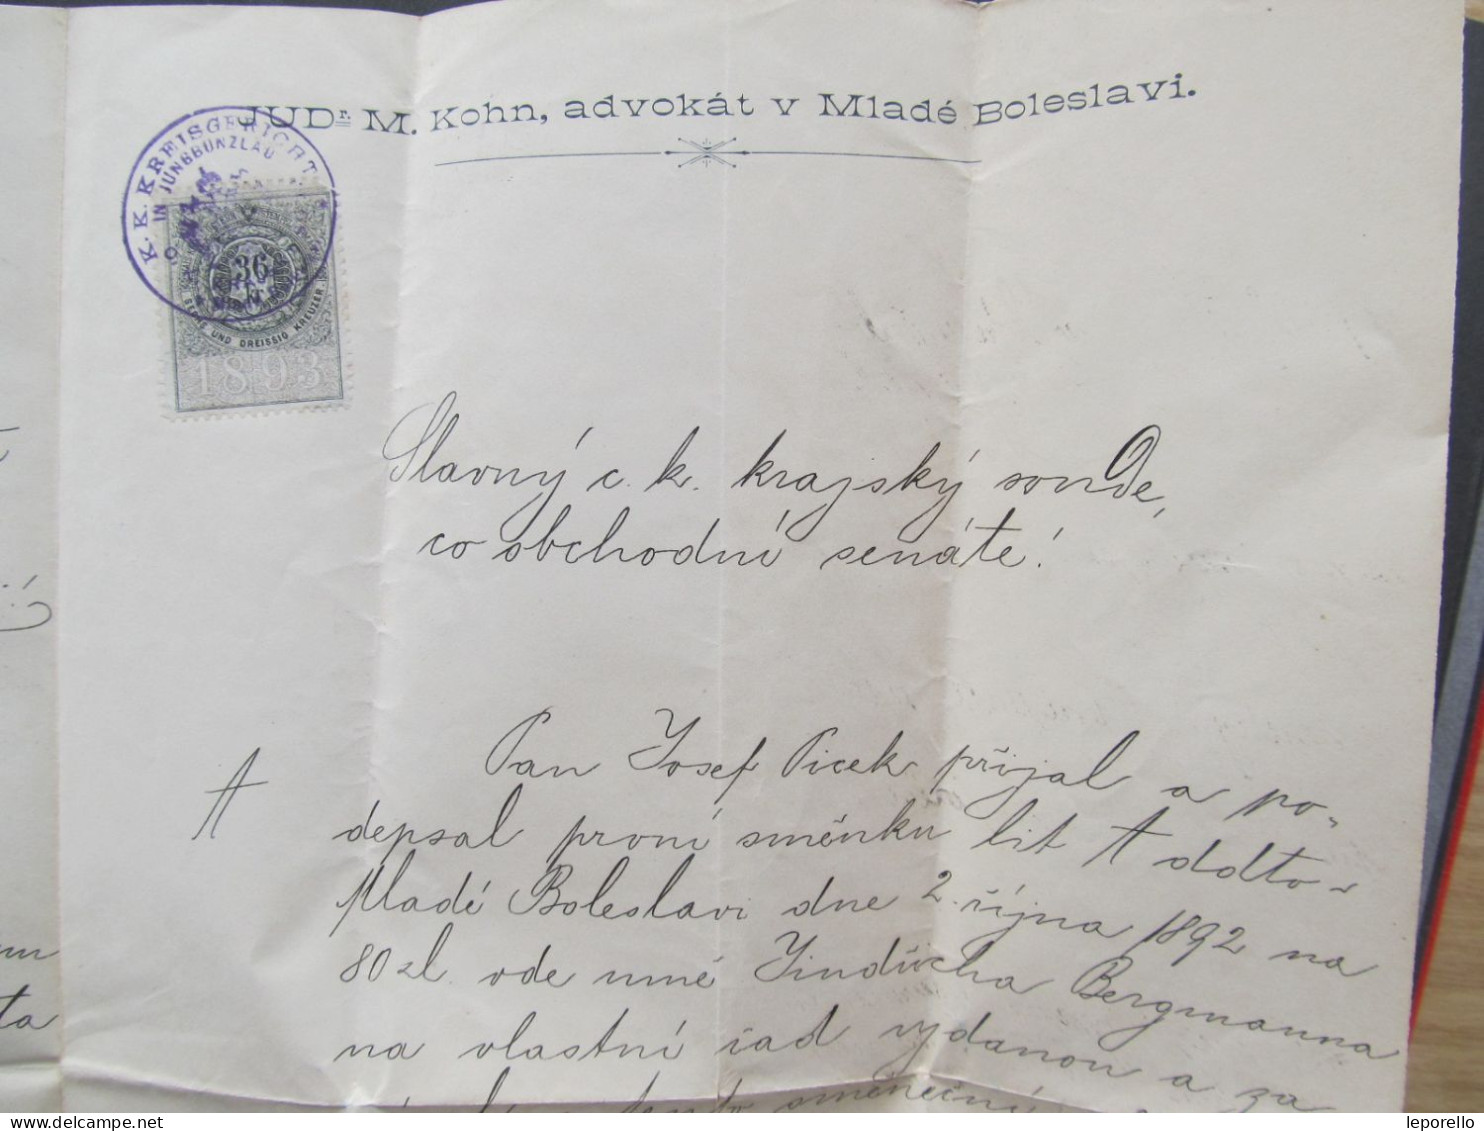 JUDr. M. Kohn, advokát v Mladé Boleslavi.
K. K. KREISGERICHT
IN JUNGBUNZLAU
36
kr
SECHS UND DREISSIG KREUZER
1893
Slavný c. k. krajský soude,
co obchodní senáte!
A
Pan Josef Picek přijal a po-
depsal první směnku lit A ddto
Mladé Boleslavi dne 2. října 1892 na
80 zl. ode mně Jindřicha Bergmanna
na vlastní řad vydanou a za
tento směnečný
leporello